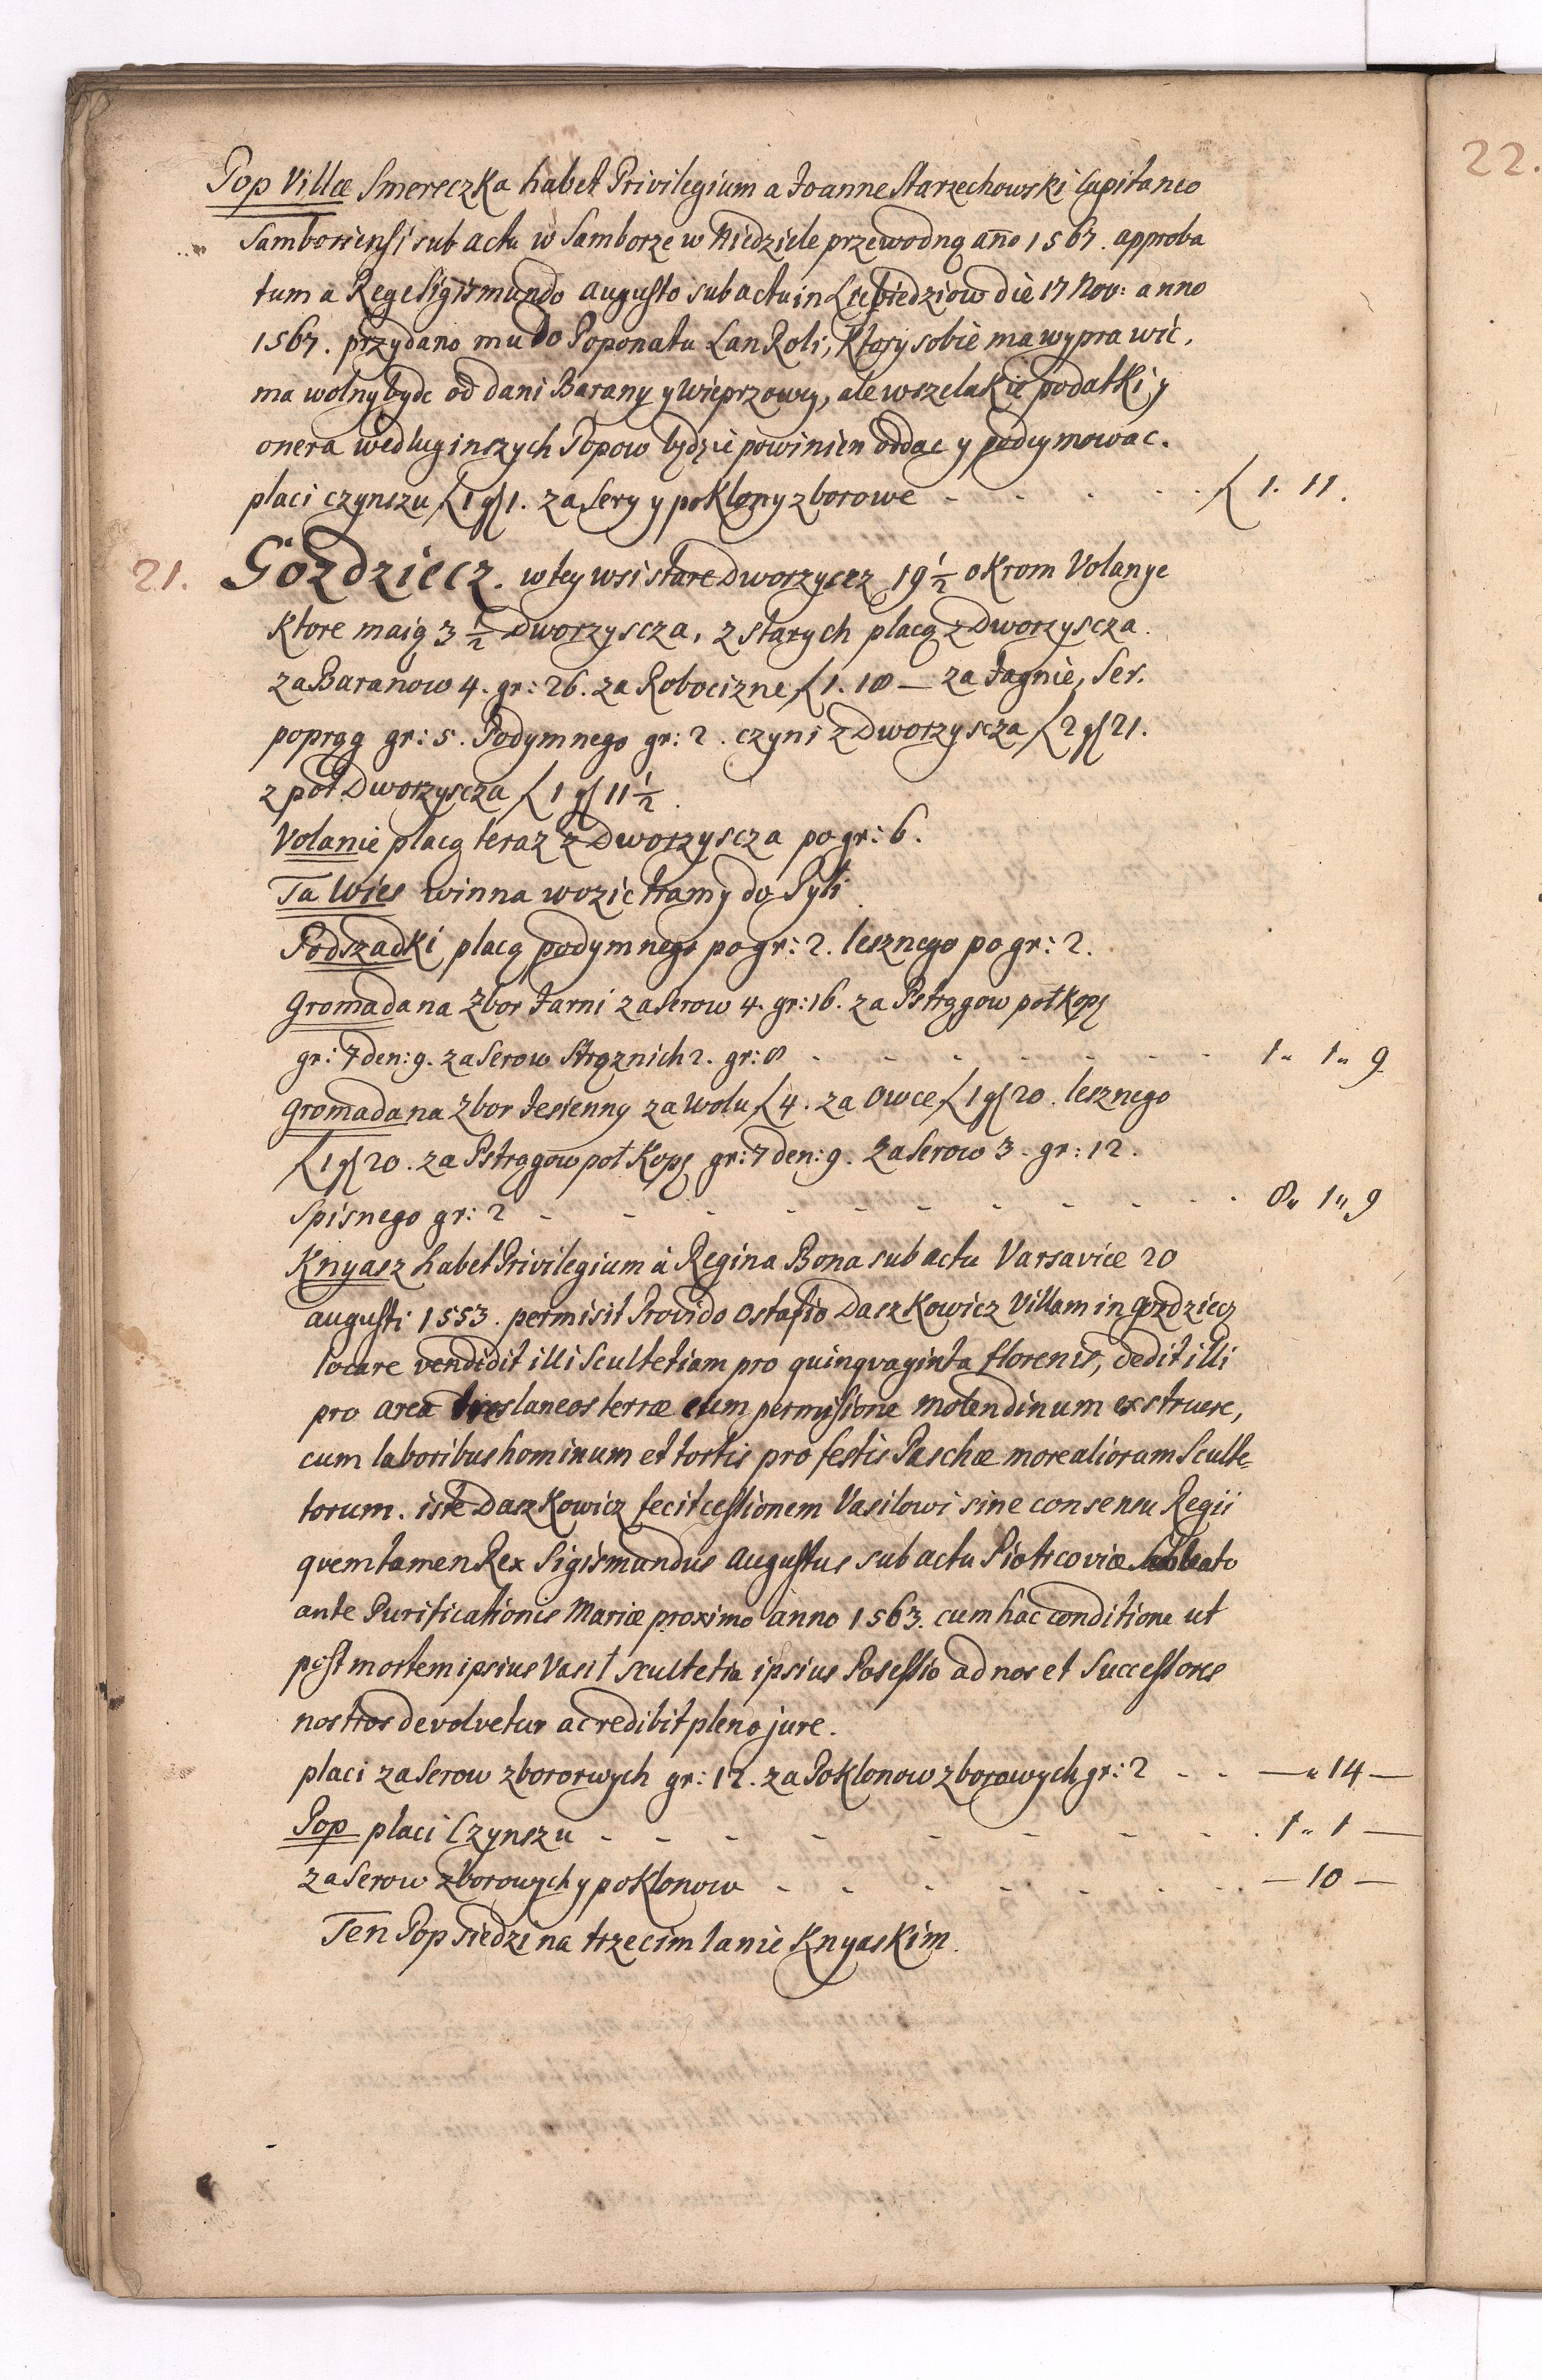 22.
Pop Villæ Smereczka habet Privilegium a Joanne Starzechowski Capitaneo
Samboriensi sub actu w Samborze w Niedziele przewodną año 1567. approba
tum a Rege Sigismundo Augusto sub actu in Lebiedziow die 17 Nov: anno
1567. przydano mu do Poponatu Lan Roli, Ktory sobie ma wyprawić,
ma wolny bydz od dani Barany y Wieprzowy, ale wszelakie podatki y
onera wedlug inszych Popow będzie powinien oddac y podeymowac.
placi czynszu ƒ 1 gſ 1. za Sery y poklony zborowe - - - - - ƒ 1. 11.
21. Gozdziecz. w tey wsi stare Dworzyscz 19½ okrom Volanye
Ktore maią 3½ Dworzyscza, z starych placą z Dworzyscza
za Baranow 4. gr: 26. za Robocizne ƒ 1. 18 — za Jagnie, Ser.
popręg gr: 5. Podymnego gr: 2. czyni z Dworzyscza ƒ 2 gſ 21.
z poł Dworzyscza ƒ 1 gſ 11½.
Volanie placą teraz z Dworzyscza po gr: 6.
Ta Wies winna wozic tramy do Pyłi
Podszadki placą podymnego po gr: 2. lesznego po gr: 2.
Gromada na zbor Jarni za Serow 4. gr: 16. za Pstrągow poł Kopÿ
gr: 7 den: 9. za Serow Strąznich 2. gr: 8 - - - - - - 1„ 1„ 9
Gromada na zbor Jesienny za Wołu ƒ 4. za Owce ƒ 1 gſ 20. lesznego
ƒ 1 gſ 20. za Pstrągow poł Kopÿ gr: 7 den: 9. Za Serow 3. gr: 12.
Spisnego gr: 2 - - - - - - - - - 8„ 1„ 9
Knyasz habet Privilegium à Regina Bona sub actu Varsaviæ 20
Augusti 1553. permisit Provido Ostafio Daszkowicz Villam in Gozdziecz
locare vendidit illi Scultetiam pro quinqvaginta florenis, dedit illi
pro area tres laneos terræ cum permisione molendinum exstruere,
cum laboribus hominum et tortis pro festis Paschæ more aliorum Sculte=
torum. iste Daszkowicz fecit cessionem Vasilowi sine consensu Regii
qvem tamen Rex Sigismundus Augustus sub actu Piotrcoviæ Sabbato
ante Purificationis Mariæ proximo anno 1563. cum hac conditione ut
post mortem ipsius Vasil scultetia ipsius Posessio ad nos et Successores
nostros devolvetur ac redibit pleno jure.
placi za Serow zbororwych gr: 12. za Poklonow zborowych gr: 2 - - —„ 14 —
Pop placi Czynszu - - - - - - - - 1„ 1 —
za Serow zborowych y poklonow - - - - - - — 10 —
Ten Pop siedzi na trzecim lanie Knyaskim.